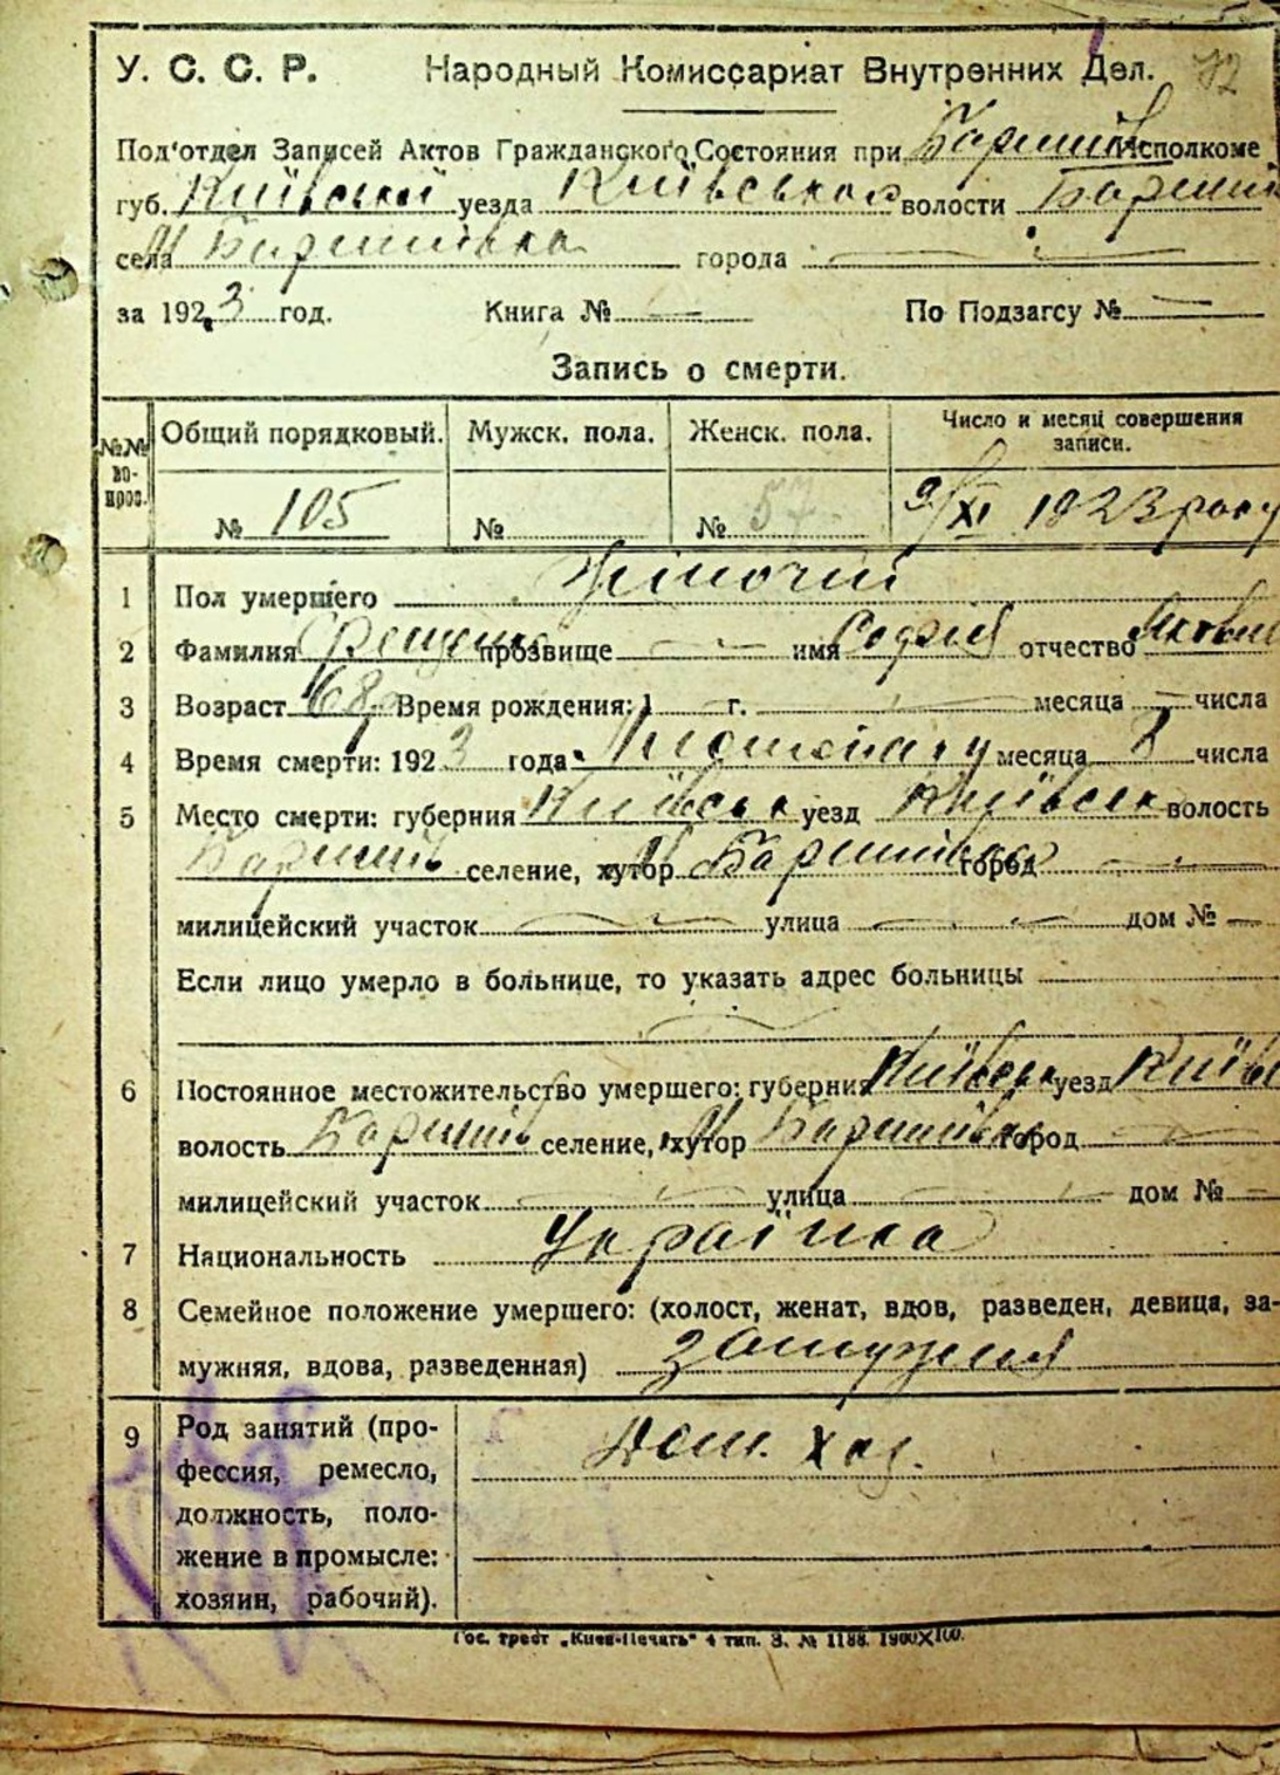 У. С. С. Р. Народный Комиссариат Внутренних Дел. 72
Под'отдел Записей Актов Гражданского Состояния при Баришів Исполкоме
губ. Київської уезда Київського волости Баришів
села М Баришівка города —
за 1923 год. Книга № — По Подзагсу № —
Запись о смерти.
№№ вопрос. Общий порядковый. Мужск. пола. Женск. пола. Число и месяц совершения записи.
№ 105 № № 57 9/XI 1923 року
1 Пол умершего Жіночий
2 Фамилия прозвище — имя Софія отчество Яковл
3 Возраст 68 р Время рождения: 1 г. — месяца — числа
4 Время смерти: 1923 года Листопаду месяца 8 числа
5 Место смерти: губерния Київськ уезд Київськ волость
Баришів селение, хутор М Баришівка город —
милицейский участок — улица — дом № —
Если лицо умерло в больнице, то указать адрес больницы —
6 Постоянное местожительство умершего: губерния Київськ уезд Київ
волость Баришів селение, хутор М Баришівка город —
милицейский участок — улица — дом № —
7 Национальность Українка
8 Семейное положение умершего: (холост, женат, вдов, разведен, девица, за-
мужняя, вдова, разведенная) замужня
9 Род занятий (про- Дом. Хаз.
фессия, ремесло,
должность, поло-
жение в промысле:
хозяин, рабочий).
Гос. трест „Киев-Печать" 4 тип. З. № 1188. 1900X100.